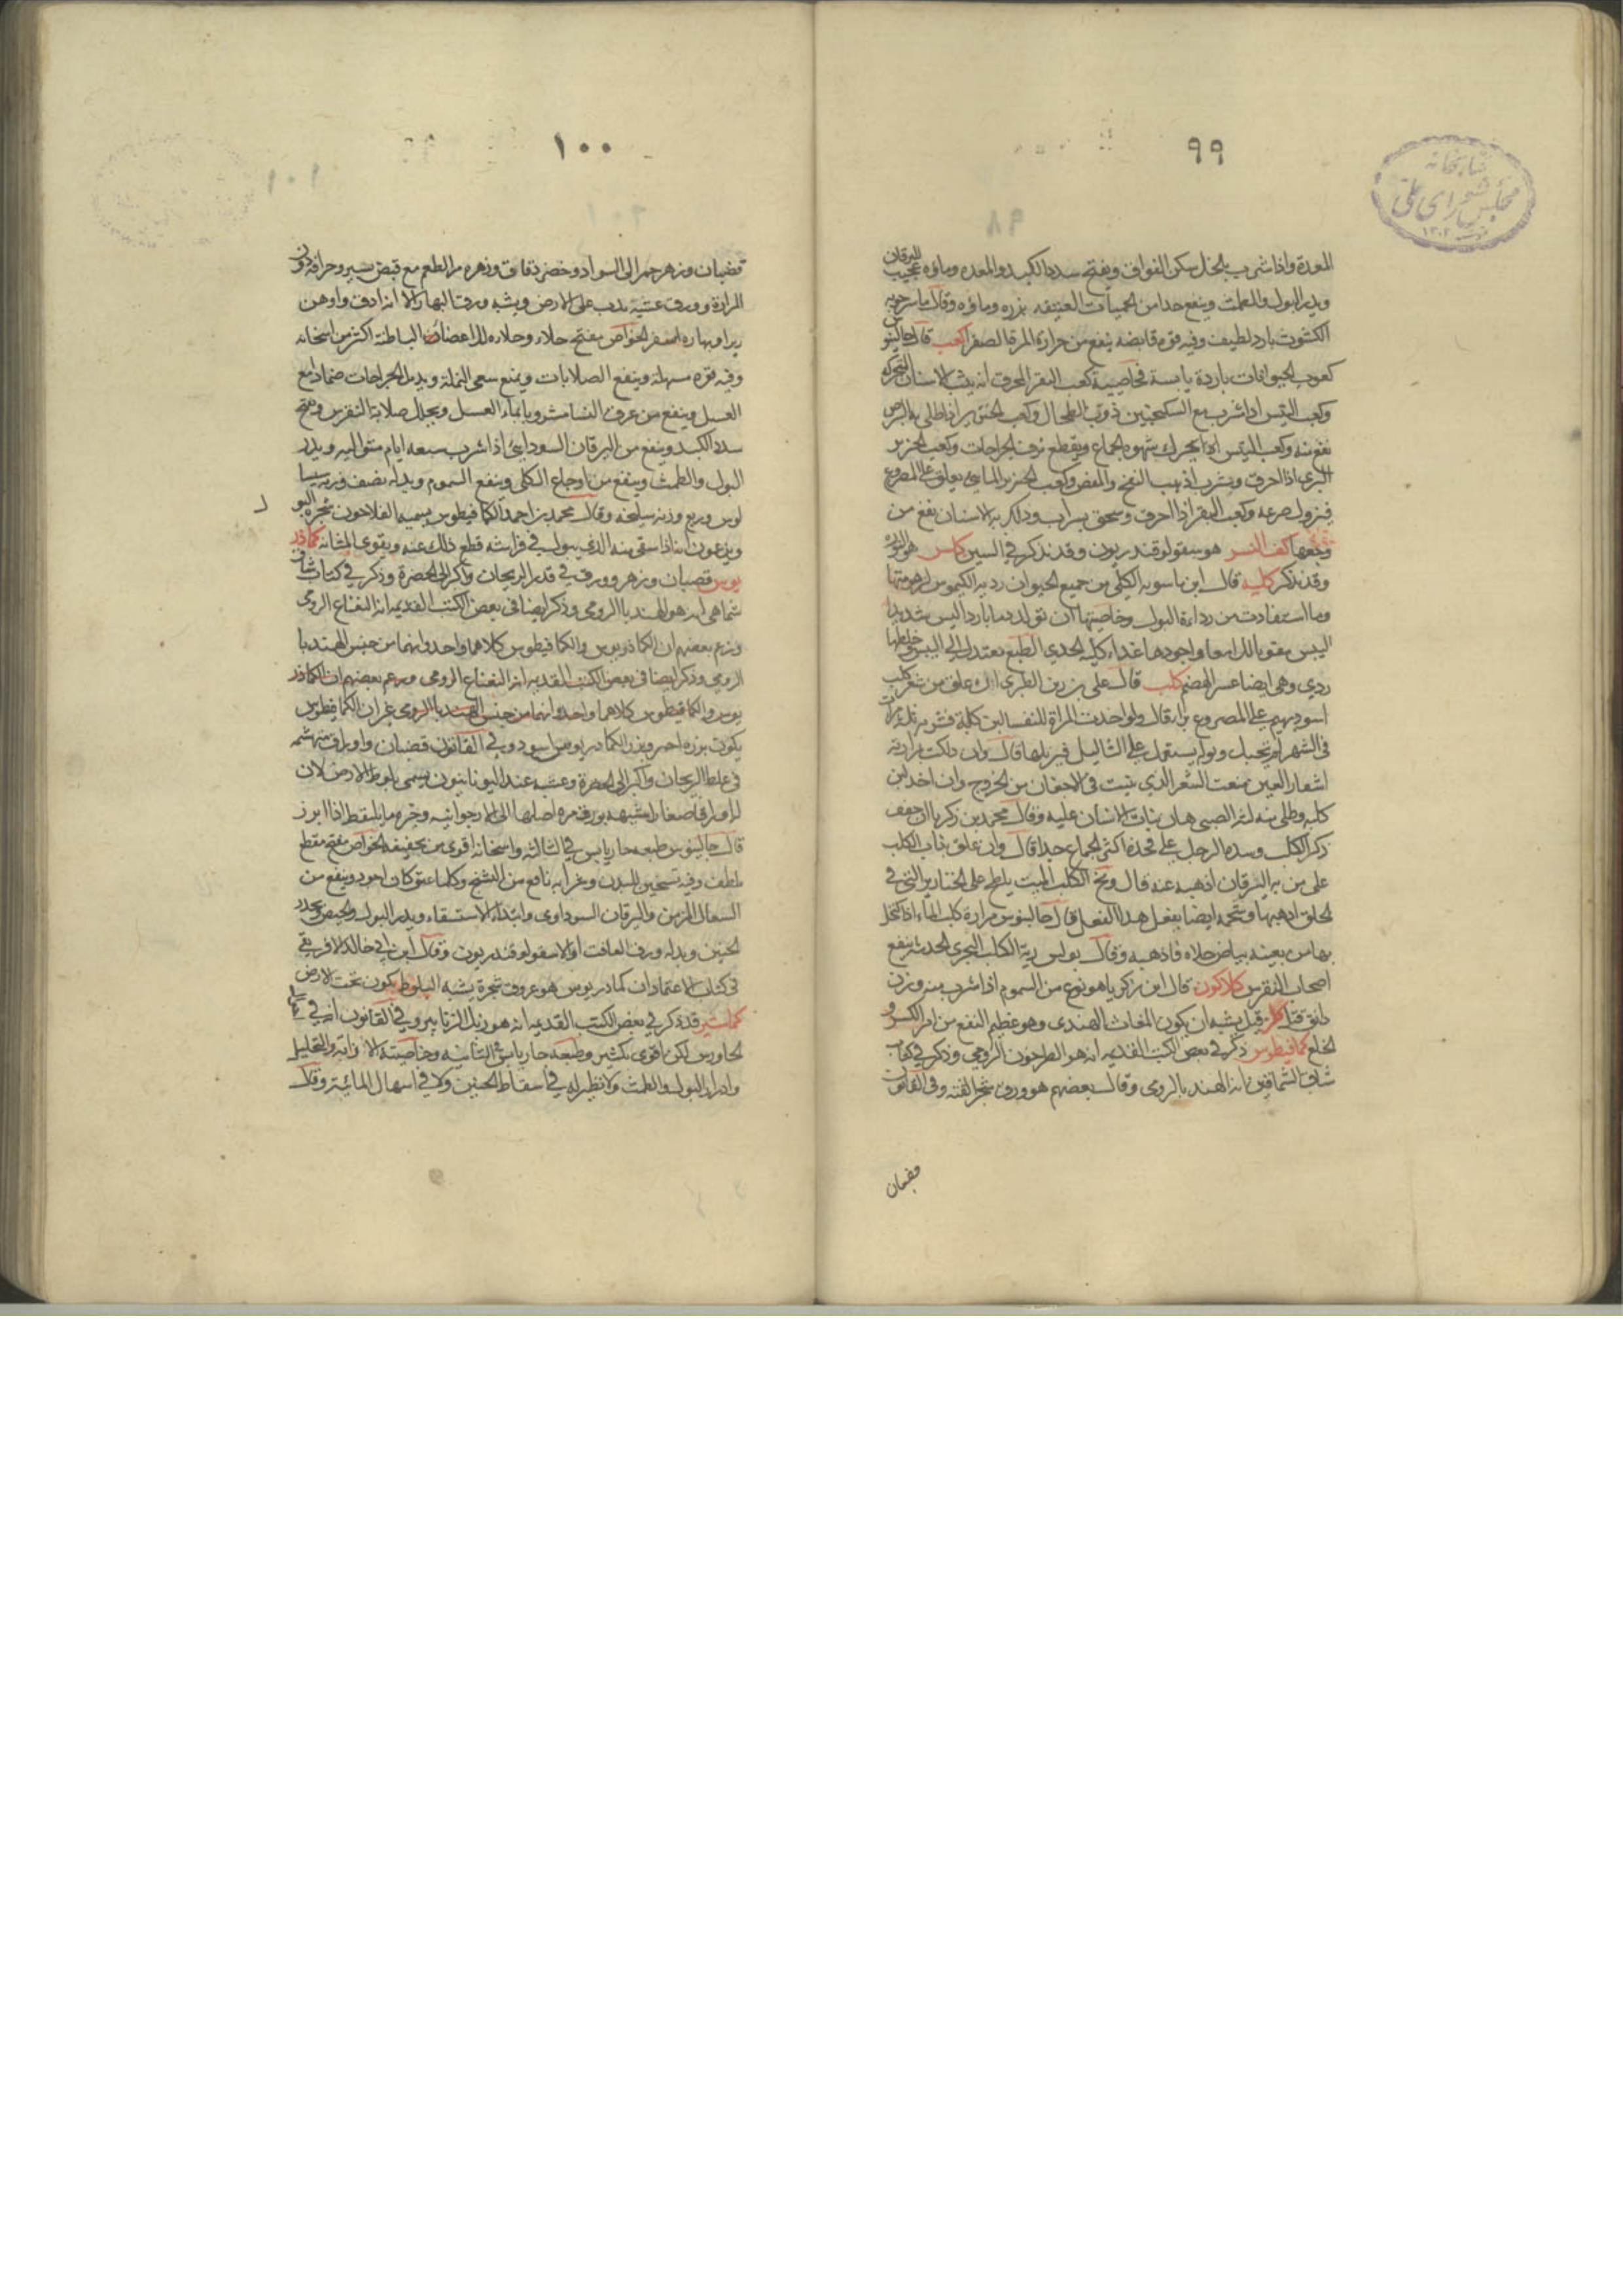 ٩٩
كتابخانه
مجلس شورای ملی
١٣٠٢
المعدة واذا شرب بالخل سكن الفواق ويفتح سدد الكبد والمعدة وماؤه عجيب لليرقان
ويدر البول والطمث وينفع جدا من الحميات العتيقة بزره وماؤه وقال ماسرجويه
الكشوت بارد لطيف وفيه قوة قابضة ينفع من حرارة المرة الصفرا كعب قال جالينوس
كعوب الحيوانات باردة يابسة خاصية كعب البقر المحرق انه يشد الاسنان المتحركة
وكعب التيس اذا شرب مع السكنجبين ذوب الطحال وكعب الخنزير اذا طلي به البرص
نفع منه وكعب التيس ايضا يحرك شهوة الجماع ويقطع نزف الجراحات وكعب الخنزير
البري اذا احرق وشرب اذهب النفخ والمغص وكعب الخنزير يعلق على المصروع
فيزول صرعه وكعب البقر اذا احرق وسحق بشراب ودلك به الاسنان نفع من
وجعها كف النسر هو سقولوقندريون وقد نذكر في السين كلس هو النورة
وقد نذكر كلية قال ابن ماسويه الكلى من جميع الحيوان ردية الكيموس لزهومتها
وما استفادت من رداءة البول وخاصيتها ان تولد دما باردا ليس شديد
اليبس مقويا للامعا واجودها غذاء كلية الجدي الطبع معتدل الى اليبس وخلطها
ردي وهي ايضا عسر الهضم كلب قال علي بن ربن الطبري ان علق من شعر كلب
اسود بهيم على المصروع برا وقال ولو اخذت المراة للنفسا لبن كلبة
في الشهر لم تحبل وبوله يستعمل على الثاليل فيزيلها قال وان دلكت مرارته
اشفار العين منعت الشعر الذي ينبت في الاجفان من الخروج وان اخذ لبن
كلبة وطلي منه لثة الصبي هان نبات الاسنان عليه وقال محمد بن زكريا ان جفف
ذكر الكلب وشده الرجل على فخذه اكثر الجماع جدا قال وان علق ناب الكلب
على من به اليرقان اذهبه عنه قال ومخ الكلب الميت يلطخ على الخنازير التي في
الحلق اذهبها وشحمه ايضا يفعل هذا الفعل قال جالينوس مرارة كلب الماء اذا كحل
بها من بعينه بياض جلاه فاذهبه وقال بولس رية الكلب البحري ينفع
اصحاب النقرس كلاكون قال ابن زكريا هو نوع من السموم اذا شرب منه وزن
دانق قتل كلز قيل يشبه ان يكون المغاث الهندي وهو عظيم النفع من امر الكسر و
الخلع كمافيطوس ذكر في بعض الكتب القديمة انه هو الطرخون الرومي وذكر في كتاب
شاناق انه الهندبا الرومي وقال بعضهم هو ورق وفي القانون
قضبان
١٠٠
قضبان وزهر حمر الى السواد وخضر دقاق وزهره مر الطعم مع قبض يسير وحرافة دون
المرارة وورق عشبه يدب على الارض ويشبه ورق البهار الا انه ادق واوهن
اصفر الخواص مفتح جلاء وجلاوه للاعضاء الباطنة اكثر من اسخانه
وفيه قوة مسهلة وينفع الصلابات ويمنع سعي النملة ويدمل الجراحات ضمادا مع
العسل وينفع من عرق النسا شربا بماء العسل ويحلل صلابة النقرس ويفتح
سدد الكبد وينفع من اليرقان السوداوي اذا شرب سبعة ايام متوالية ويدر
البول والطمث وينفع من اوجاع الكلى وينفع السموم وبدله نصف وزنه سيسا
لوس وربع وزنه سليخة وقال محمد بن احمد الكمافيطوس يسميه الفلاحون شجرة البول
ويزعمون انه اذا سقي منه الذي يبول في فراشه قطع ذلك عنه ويقوي المثانة كماذر
يوس قضبان وزهر وورق في قدر الريحان واكثر الى الخضرة وذكر في كتاب شاناق
هو الهندبا الرومي وذكر ايضا في بعض الكتب القديمة انه النعناع الرومي
وزعم بعضهم ان الكماذريوس والكمافيطوس كلاهما واحد وانهما من جنس الهندبا
الرومي وذكر ايضا في بعض الكتب القديمة انه النعناع الرومي وزعم بعضهم ان الكماذر
يوس والكمافيطوس كلاهما واحد وانهما من جنس الهندبا الرومي غير ان الكمافيطوس
يكون بزره احمر وبزر الكماذريوس اسود وفي القانون قضبان واوراق متهشمة
في غلظ الريحان واكثر الى الخضرة وعشبه عند اليونانيين يسمى بلوط الارض لان
له اوراقا صغارا مشبهة بورقه مرة اصلها الى الارجوانية وخير ما يلتقط اذا ابرز
قال جالينوس طبعه حار يابس في الثالثة واسخانه اقوى من تجفيفه الخواص مفتح مقطع
ملطف وفيه تسخين للبدن وشرابه نافع من التشنج وكلما عتق كان اجود وينفع من
السعال المزمن واليرقان السوداوي وابتداء الاستسقاء ويدر البول والحيض ويحدر
الجنين وبدله ورق الغافت او الاسقولوقندريون وقال ابن ابي خالد الافريقي
في كتاب الاعتماد ان كماذريوس هو عروق شجرة يشبه البلوط يكون تحت الارض
كماشير قد ذكر في بعض الكتب القديمة انه هو زبل الزنابير وفي القانون انه في
الجاورس لكن اقوى بكثير وطبعه حار يابس في الثانية وخاصيته الاذابة والتحليل
وادرار البول والطمث ولا نظير له في اسقاط الجنين ولا في اسهال المائية وقال